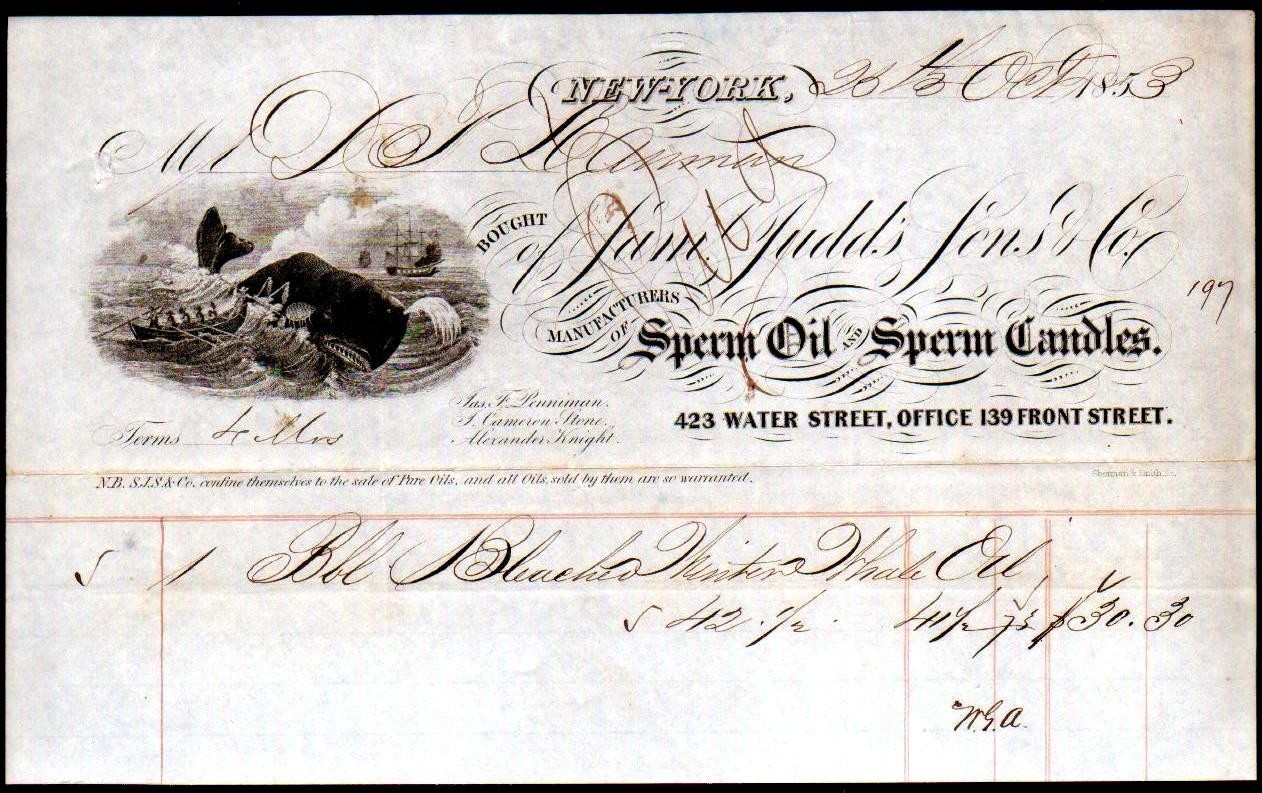 NEW-YORK, 26th Oct 1853
Mr D S
BOUGHT of Saml. Judd's Sons & Co.
197
MANUFACTURERS OF Sperm Oil AND Sperm Candles.
423 WATER STREET, OFFICE 139 FRONT STREET.
Jas. F. Penniman.
J. Cameron Stone.
Alexander Knight.
Terms 4 Mos
N.B. S.J.S & Co. confine themselves to the sale of Pure Oils, and all Oils, sold by them are so warranted.
Sherman & Smith
1 Bbl Bleached Winter Whale Oil
42 1/2 73 $30.30
W.G.A.